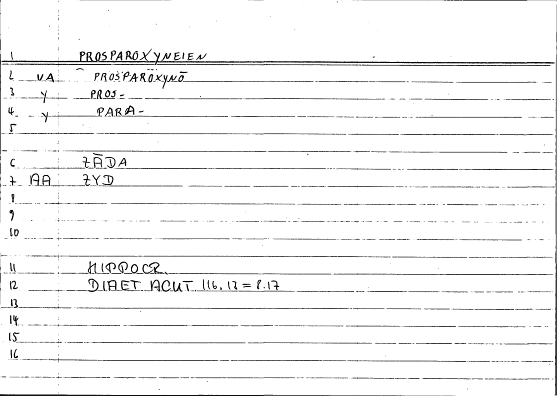 1 PROSPAROXYNEIEN
2 VA PROSPAROXYNŌ
3 Y PROS-
4 Y PARA-
5
6 ZĀDA
7 AA ZYD
8
9
10
11 HIPPOCR.
12 DIAET ACUT 116.17 = 8.17
13
14
15
16